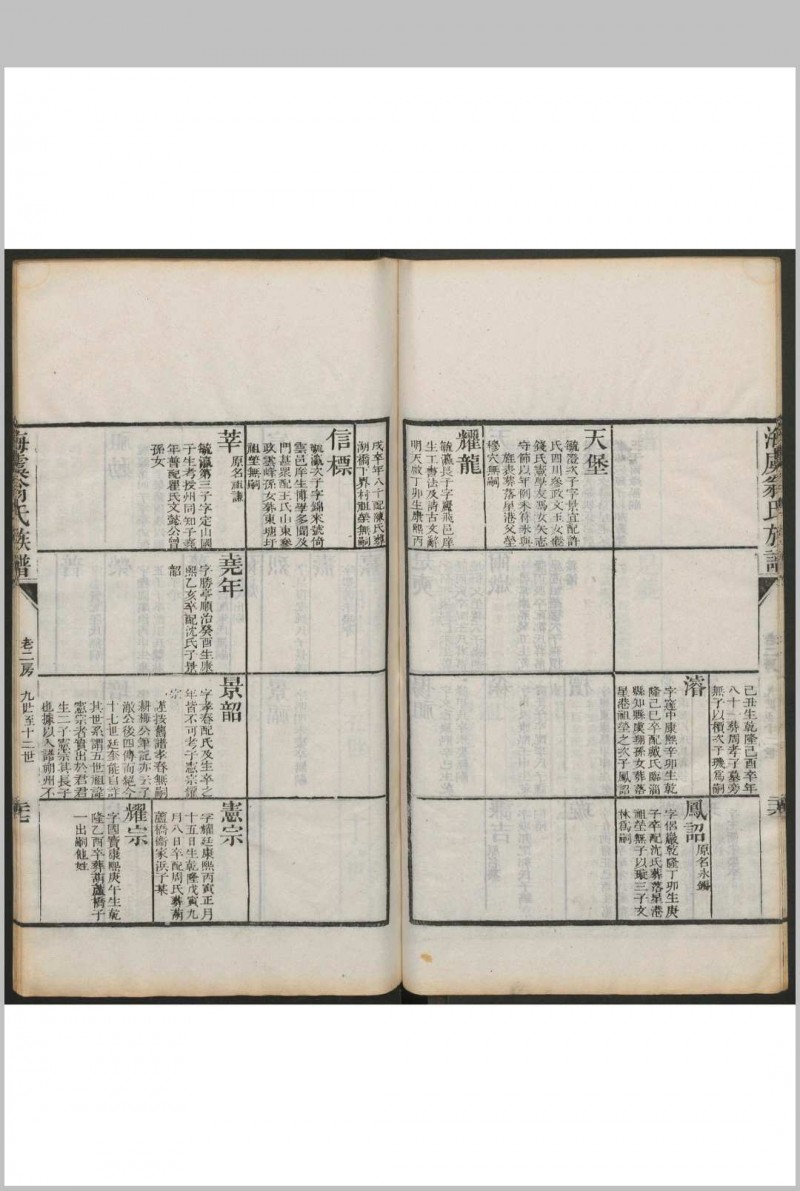 海虞翁氏族譜
己丑生乾隆己酉卒年
八十一葬周孝子墓旁
無子以櫝次子璣爲嗣
濬
字蓬中康熙辛卯生乾
隆己巳卒配戴氏臨淄
縣知縣虞翔孫女葬落
星港祖塋之次子鳳詔
鳳詔
原名永錫
字侶巖乾隆丁卯生庚
子卒配沈氏葬落星港
祖塋無子以璇三子文
林爲嗣
天堡
毓澄次子字景宜配許
氏四川參政文玉女繼
錢氏憲學友馮女矢志
守節以年例未符未與
旌表葬落星港父塋
穆穴無嗣
耀龍
毓瀛長子字躍飛邑庠
生工書法及詩古文辭
明天啟丁卯生康熙丙
戌卒年八十配陳氏葬
湖橋丁界村祖塋無嗣
信標
毓瀛次子字錦來號倚
雲邑庠生博學多聞及
門甚眾配王氏山東參
政雲峰孫女葬東塘圩
祖塋無嗣
莘
原名祖謙
毓瀛第三子字定山國
子生考授州同知子堯
年善配瞿氏文懿公曾
孫女
堯年
字勝亭順治癸酉生康
熙乙亥卒配沈氏子景
韶
景韶
字孝春配氏及生卒之
年皆不可考子憲宗耀
宗
謹按舊譜孝春無嗣
耕梅公筆記亦云子
派公後四傳而絕今
十七世廷奎能自詳
其世系謂五世祖諱
憲宗者實出於君君
生二子憲宗其長子
也據以入譜朔州不
憲宗
字耀廷康熙丙寅正月
十五日生乾隆戊寅九
月八日卒配周氏葬葫
蘆橋衞家浜子某
耀宗
字國寶康熙庚午生乾
隆乙酉卒葬葫蘆橋子
一出嗣他姓
海虞翁氏族譜
老二房 九世至十二世